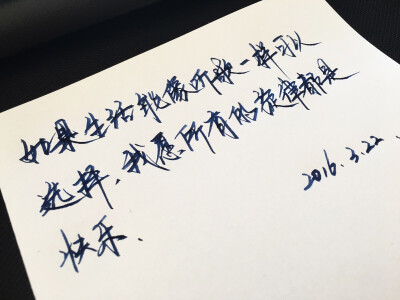 如果生活能像听歌一样可以
选择，我愿所有的旋律都是
快乐.
2016.3.22